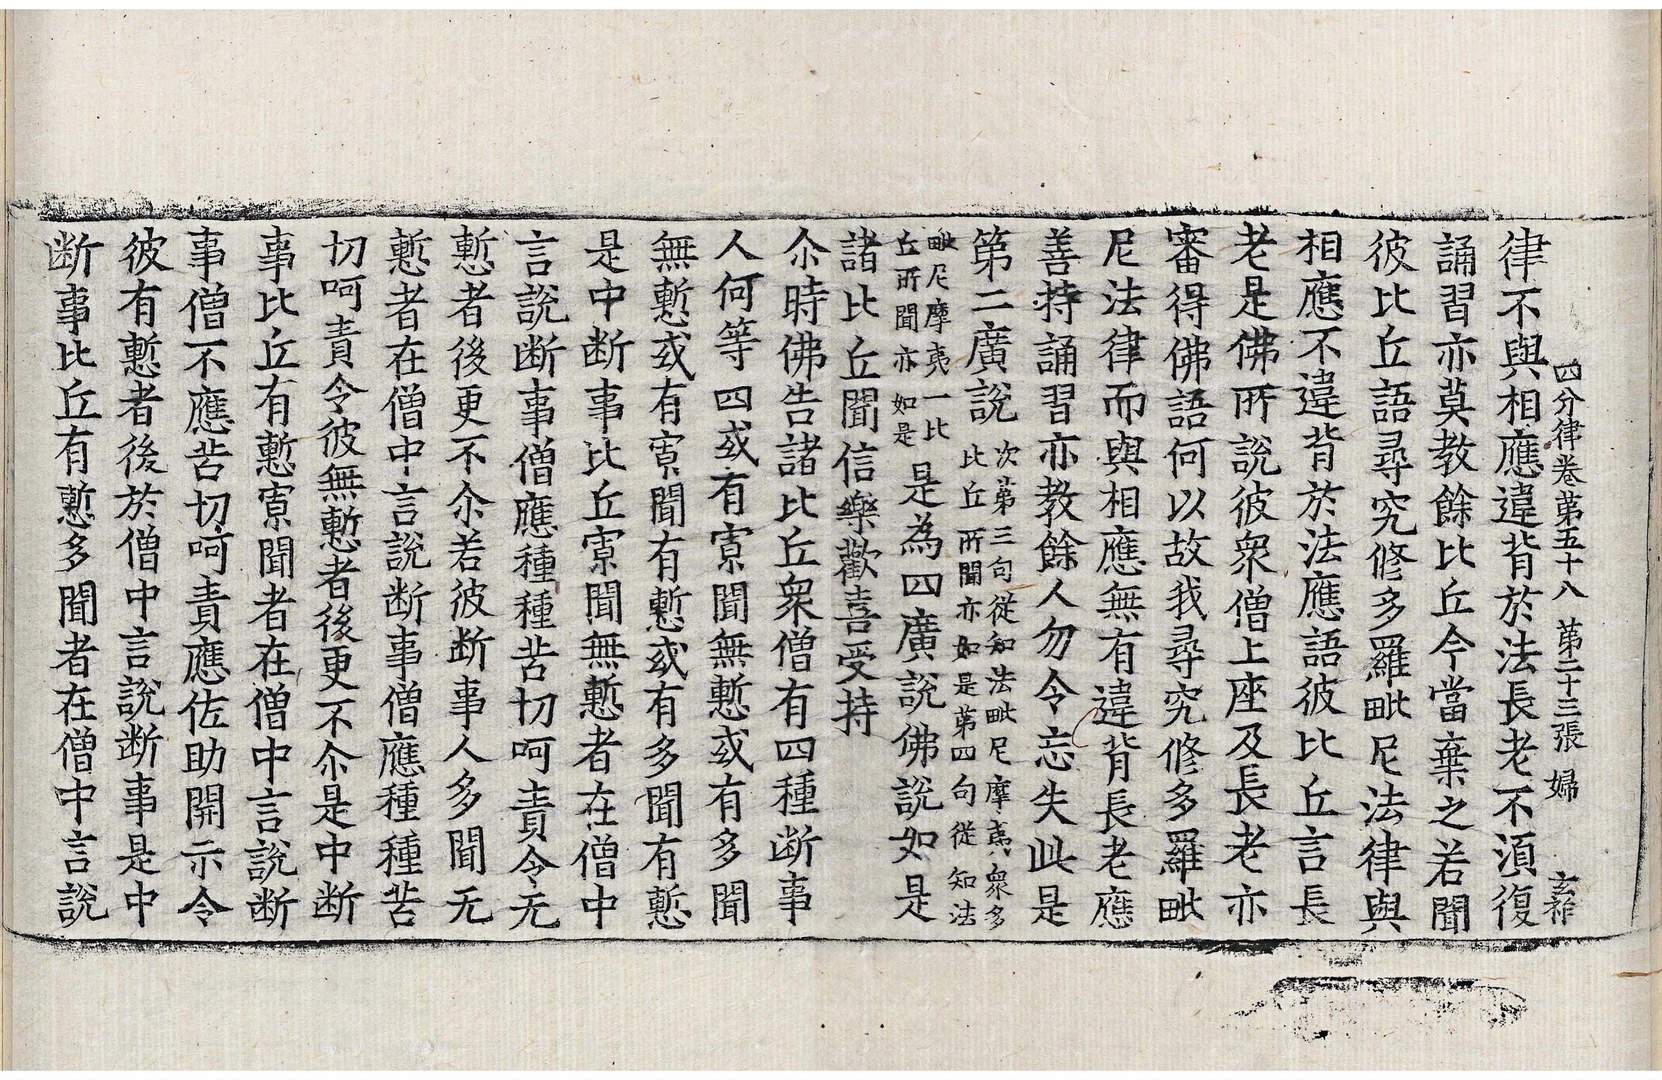 四分律卷第五十八 第二十三張 婦 玄作
律不與相應違背於法長老不湏復
誦習亦莫教餘比丘今當棄之若聞
彼比丘語尋究修多羅毗尼法律與
相應不違背於法應語彼比丘言長
老是佛所說彼衆僧上座及長老亦
審得佛語何以故我尋究修多羅毗
尼法律而與相應無有違背長老應
善持誦習亦教餘人勿令忘失此是
第二廣說 次第三句從知法毗尼摩夷衆多
比丘所聞亦如是第四句從知法
毗尼摩夷一比
丘所聞亦如是 是為四廣說佛說如是
諸比丘聞信樂歡喜受持
尒時佛告諸比丘衆僧有四種断事
人何等四或有寡聞無慙或有多聞
無慙或有寡聞有慙或有多聞有慙
是中断事比丘寡聞無慙者在僧中
言說断事僧應種種苦切呵責令无
慙者後更不尒若彼断事人多聞无
慙者在僧中言說断事僧應種種苦
切呵責令彼無慙者後更不尒是中断
事比丘有慙寡聞者在僧中言說断
事僧不應苦切呵責應佐助開示令
彼有慙者後於僧中言說断事是中
断事比丘有慙多聞者在僧中言說